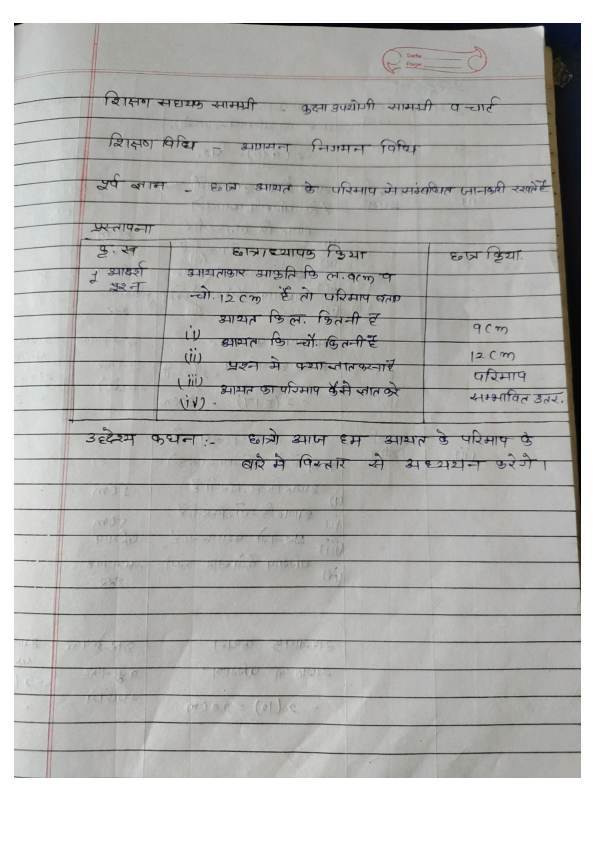 Date
Page
शिक्षण सहायक सामग्री - कक्षा उपयोगी सामग्री व चार्ट
शिक्षण विधि - आगमन निगमन विधि
पूर्व ज्ञान - छात्र आयत के परिमाप से संबंधित जानकारी रखते है
प्रस्तावना
क्र. स छात्राध्यापक क्रिया छात्र क्रिया.
1 आदर्श आयताकार आकृति कि ल. 9cm व
प्रश्न चौ. 12cm है तो परिमाप बताए
(i) आयत कि ल. कितनी है 9cm
(ii) आयत कि चौ. कितनी है 12cm
(iii) प्रश्न मे क्या ज्ञात करना है परिमाप
(iv) - आयत का परिमाप कैसे ज्ञात करे सम्भावित उतर.
उद्देश्य कथन :- छात्रो आज हम आयत के परिमाप के
बारे मे विस्तार से अध्ययन करेगे।